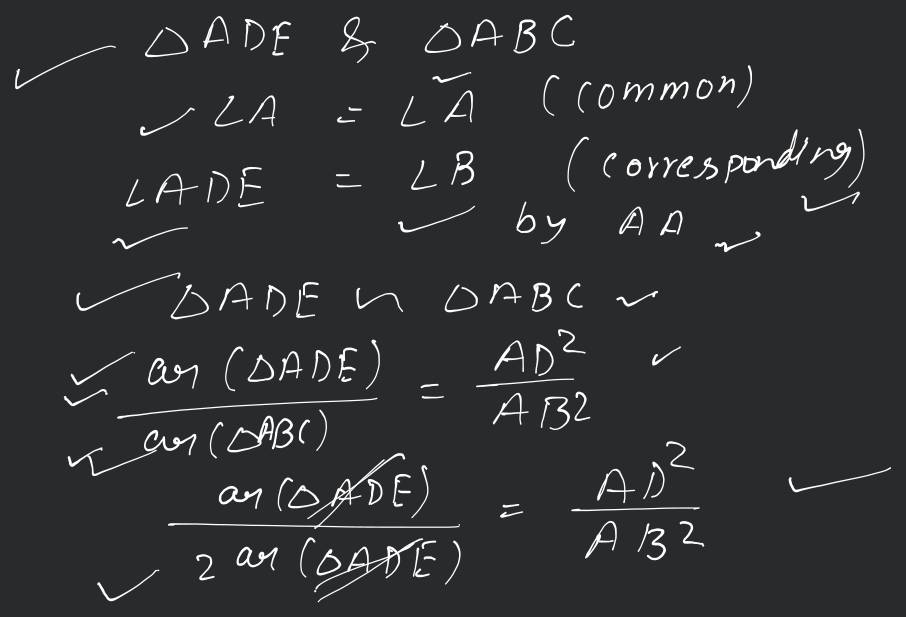 △ADE & △ABC
∠A = ∠A (common)
∠ADE = ∠B (corresponding)
by AA
△ADE ~ △ABC
ar(△ADE) / ar(△ABC) = AD² / AB²
ar(△ADE) / 2 ar(△ADE) = AD² / AB²